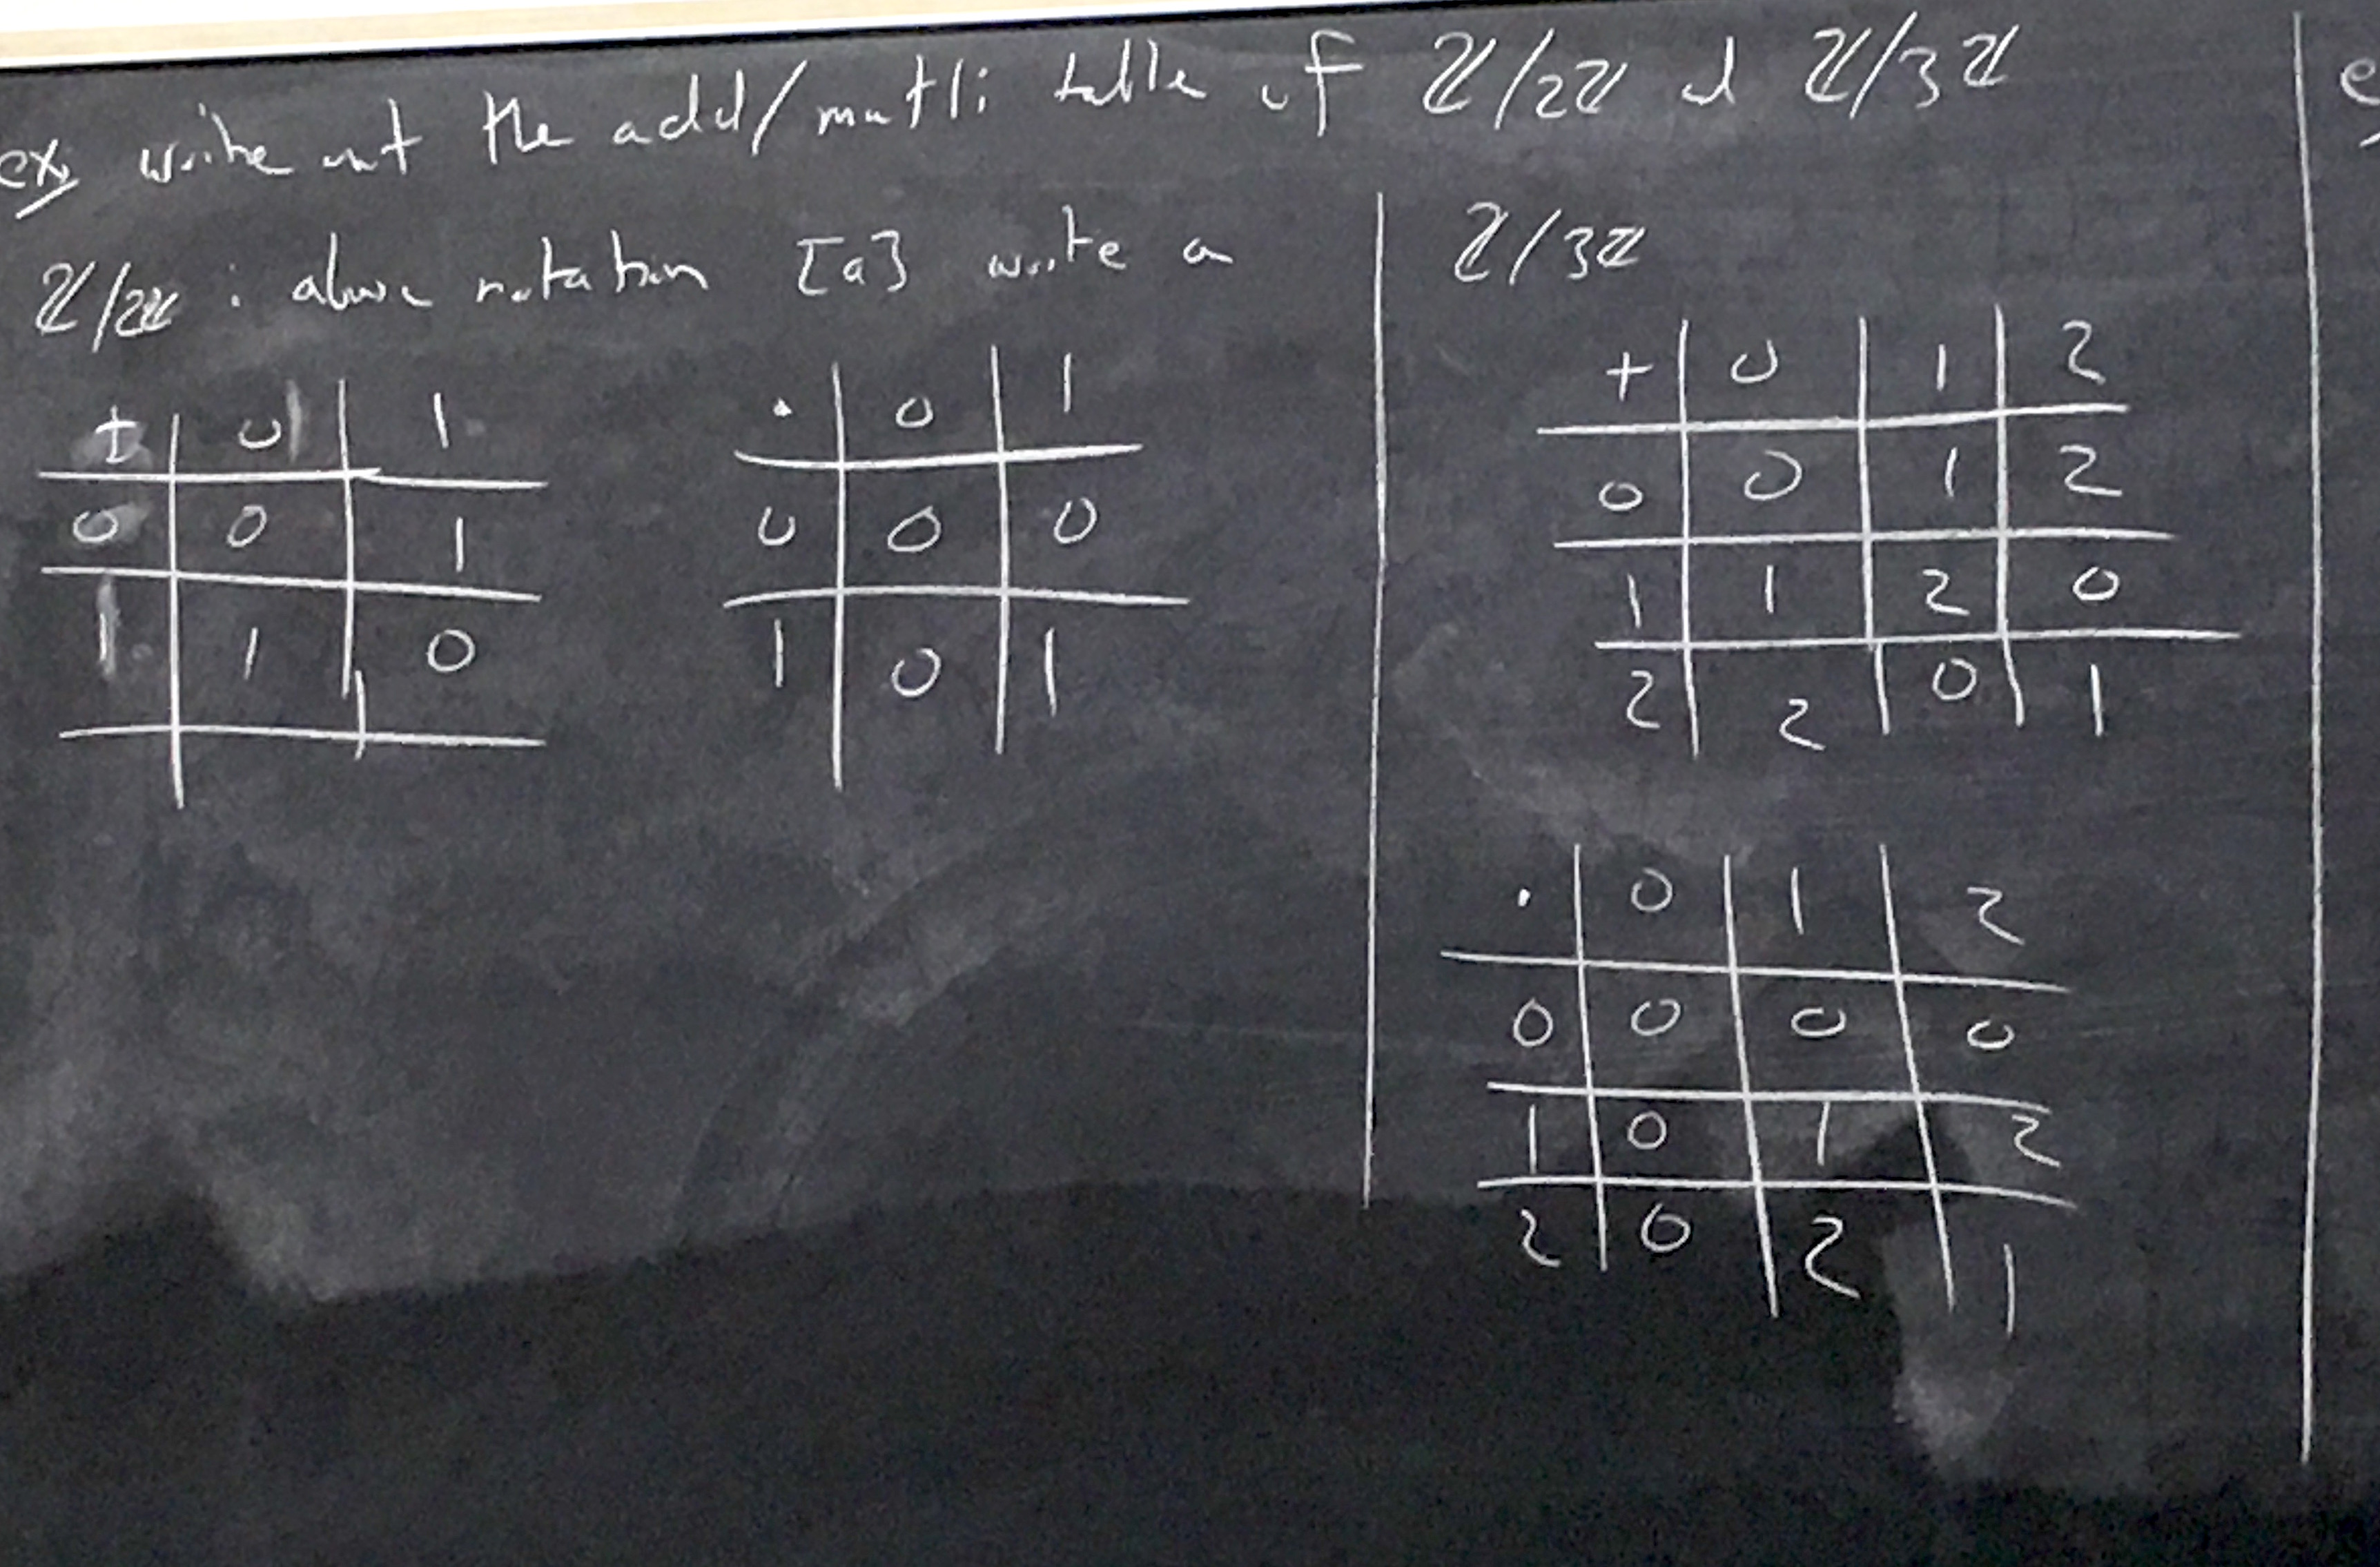 ex, write out the add/mutli table of ℤ/2ℤ d ℤ/3ℤ
ℤ/2ℤ : abuse notation [a] write a
+ 0 1
0 0 1
1 1 0
· 0 1
0 0 0
1 0 1
ℤ/3ℤ
+ 0 1 2
0 0 1 2
1 1 2 0
2 2 0 1
· 0 1 2
0 0 0 0
1 0 1 2
2 0 2 1